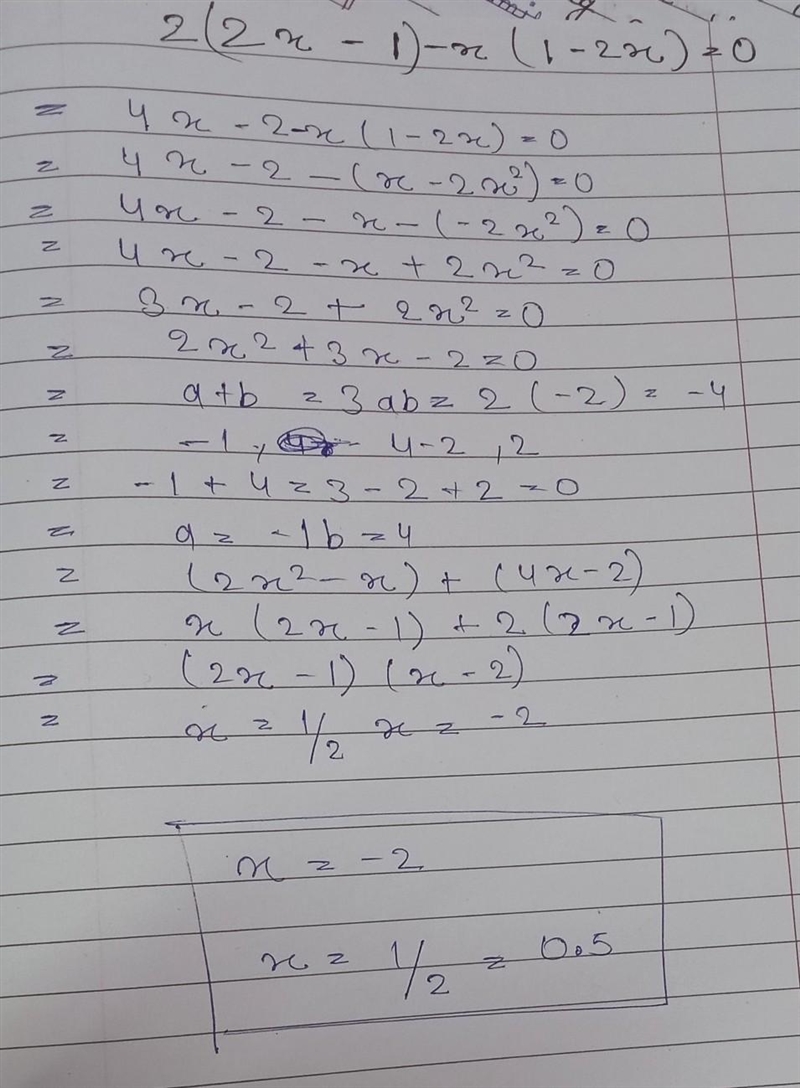 2(2x - 1) - x (1 - 2x) = 0
= 4x - 2 - x (1 - 2x) = 0
= 4x - 2 - (x - 2x²) = 0
= 4x - 2 - x - (-2x²) = 0
= 4x - 2 - x + 2x² = 0
= 3x - 2 + 2x² = 0
= 2x² + 3x - 2 = 0
= a + b = 3 ab = 2 (-2) = -4
= -1, 4 -2, 2
= -1 + 4 = 3 - 2 + 2 = 0
= a = -1 b = 4
= (2x² - x) + (4x - 2)
= x (2x - 1) + 2 (2x - 1)
= (2x - 1) (x - 2)
= x = 1/2 x = -2
x = -2
x = 1/2 = 0.5